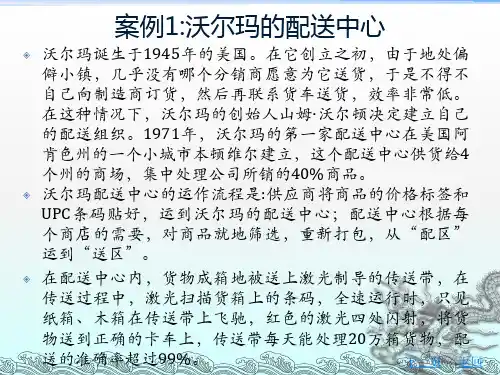 案例1:沃尔玛的配送中心
沃尔玛诞生于1945年的美国。在它创立之初，由于地处偏
僻小镇，几乎没有哪个分销商愿意为它送货，于是不得不
自己向制造商订货，然后再联系货车送货，效率非常低。
在这种情况下，沃尔玛的创始人山姆·沃尔顿决定建立自己
的配送组织。1971年，沃尔玛的第一家配送中心在美国阿
肯色州的一个小城市本顿维尔建立，这个配送中心供货给4
个州的商场，集中处理公司所销的40%商品。
沃尔玛配送中心的运作流程是:供应商将商品的价格标签和
UPC条码贴好，运到沃尔玛的配送中心；配送中心根据每
个商店的需要，对商品就地筛选，重新打包，从“配区”
运到“送区”。
在配送中心内，货物成箱地被送上激光制导的传送带，在
传送过程中，激光扫描货箱上的条码，全速运行时，只见
纸箱、木箱在传送带上飞驰，红色的激光四处闪射，将货
物送到正确的卡车上，传送带每天能处理20万箱货物，配
送的准确率超过99%。